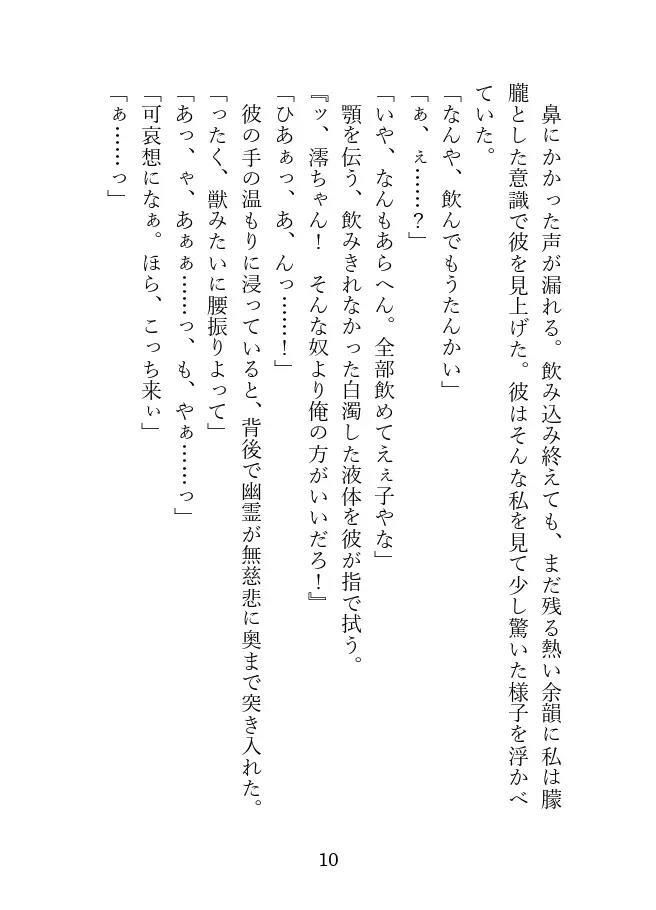 鼻にかかった声が漏れる。飲み込み終えても、まだ残る熱い余韻に私は朦
朧とした意識で彼を見上げた。彼はそんな私を見て少し驚いた様子を浮かべ
ていた。
「なんや、飲んでもうたんかい」
「ぁ、ぇ……？」
「いや、なんもあらへん。全部飲めてえぇ子やな」
顎を伝う、飲みきれなかった白濁した液体を彼が指で拭う。
『ッ、澪ちゃん！　そんな奴より俺の方がいいだろ！』
「ひあぁっ、あ、んっ……！」
彼の手の温もりに浸っていると、背後で幽霊が無慈悲に奥まで突き入れた。
「ったく、獣みたいに腰振りよって」
「あっ、ゃ、あぁぁ……っ、も、やぁ……っ」
「可哀想になぁ。ほら、こっち来ぃ」
「ぁ……っ」
10